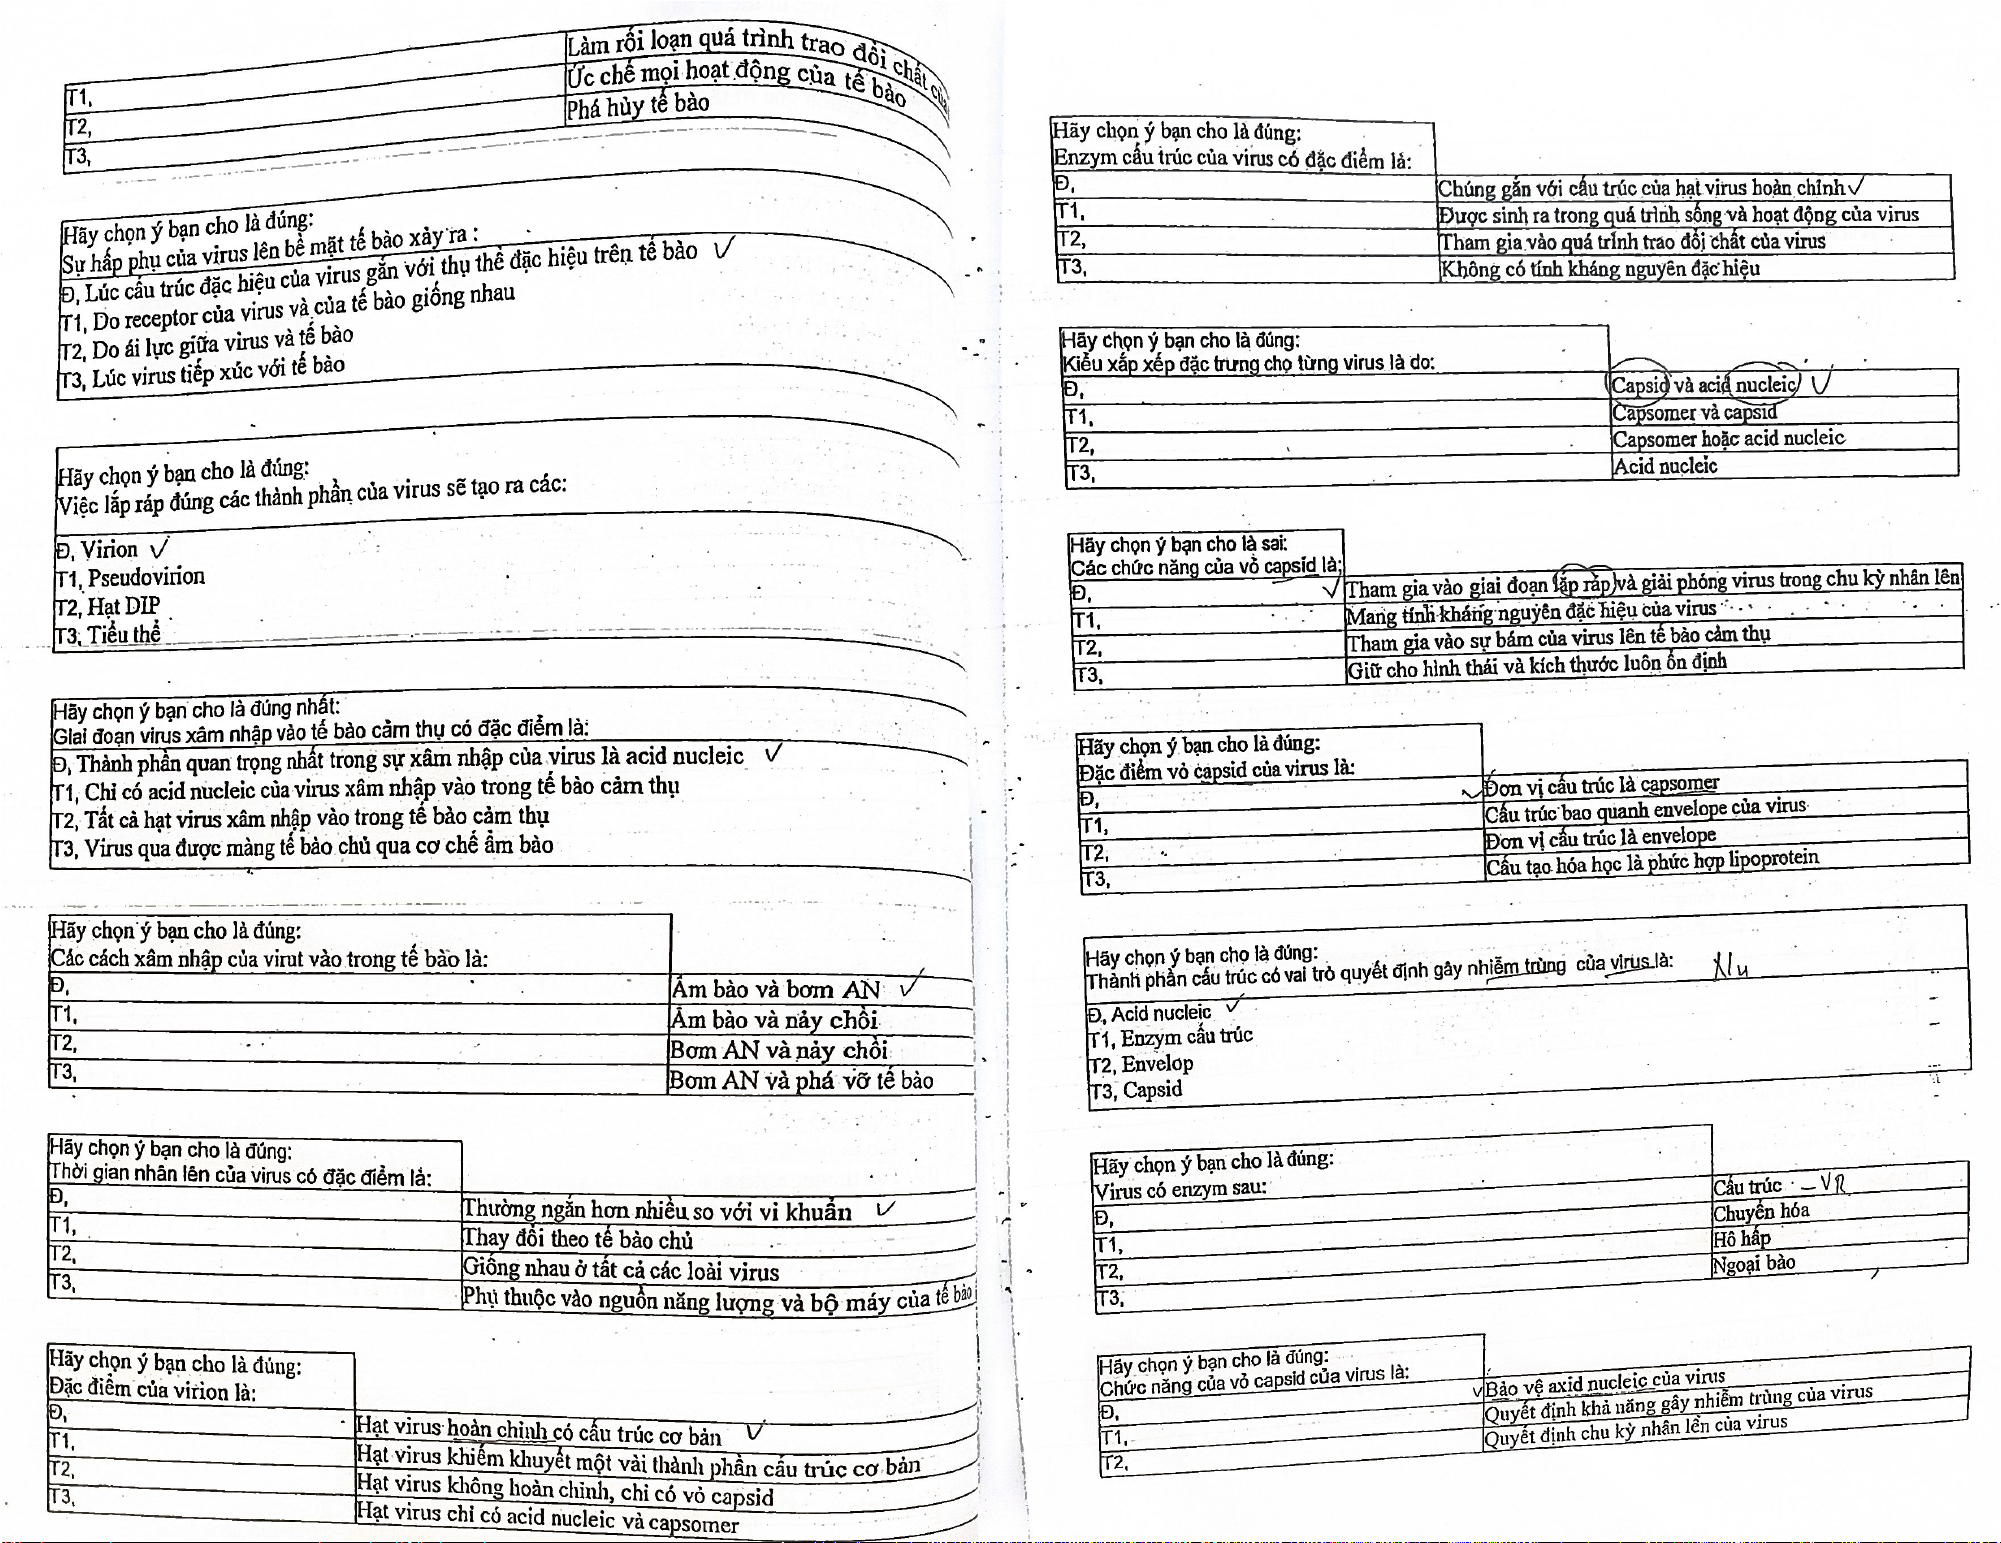 Làm rối loạn quá trình trao đổi chất của
T1, Ức chế mọi hoạt động của tế bào
T2, Phá hủy tế bào
T3,
Hãy chọn ý bạn cho là đúng:
Sự hấp phụ của virus lên bề mặt tế bào xảy ra :
Đ, Lúc cấu trúc đặc hiệu của virus gắn với thụ thể đặc hiệu trên tế bào ✓
T1, Do receptor của virus và của tế bào giống nhau
T2, Do ái lực giữa virus và tế bào
T3, Lúc virus tiếp xúc với tế bào
Hãy chọn ý bạn cho là đúng:
Việc lắp ráp đúng các thành phần của virus sẽ tạo ra các:
Đ, Virion ✓
T1, Pseudovirion
T2, Hạt DIP
T3, Tiểu thể
Hãy chọn ý bạn cho là đúng nhất:
Giai đoạn virus xâm nhập vào tế bào cảm thụ có đặc điểm là:
Đ, Thành phần quan trọng nhất trong sự xâm nhập của virus là acid nucleic ✓
T1, Chỉ có acid nucleic của virus xâm nhập vào trong tế bào cảm thụ
T2, Tất cả hạt virus xâm nhập vào trong tế bào cảm thụ
T3, Virus qua được màng tế bào chủ qua cơ chế ẩm bào
Hãy chọn ý bạn cho là đúng:
Các cách xâm nhập của virut vào trong tế bào là:
Đ, Ẩm bào và bơm AN ✓
T1, Ẩm bào và nảy chồi
T2, Bơm AN và nảy chồi
T3, Bơm AN và phá vỡ tế bào
Hãy chọn ý bạn cho là đúng:
Thời gian nhân lên của virus có đặc điểm là:
Đ, Thường ngắn hơn nhiều so với vi khuẩn ✓
T1, Thay đổi theo tế bào chủ
T2, Giống nhau ở tất cả các loài virus
T3, Phụ thuộc vào nguồn năng lượng và bộ máy của tế bào
Hãy chọn ý bạn cho là đúng:
Đặc điểm của virion là:
Đ, Hạt virus hoàn chỉnh có cấu trúc cơ bản ✓
T1, Hạt virus khiếm khuyết một vài thành phần cấu trúc cơ bản
T2, Hạt virus không hoàn chỉnh, chỉ có vỏ capsid
T3, Hạt virus chỉ có acid nucleic và capsomer
Hãy chọn ý bạn cho là đúng:
Enzym cấu trúc của virus có đặc điểm là:
Đ, Chúng gắn với cấu trúc của hạt virus hoàn chỉnh ✓
T1, Được sinh ra trong quá trình sống và hoạt động của virus
T2, Tham gia vào quá trình trao đổi chất của virus
T3, Không có tính kháng nguyên đặc hiệu
Hãy chọn ý bạn cho là đúng:
Kiểu xắp xếp đặc trưng cho từng virus là do:
Đ, Capsid và acid nucleic ✓
T1, Capsomer và capsid
T2, Capsomer hoặc acid nucleic
T3, Acid nucleic
Hãy chọn ý bạn cho là sai:
Các chức năng của vỏ capsid là:
Đ, ✓ Tham gia vào giai đoạn lắp ráp và giải phóng virus trong chu kỳ nhân lên
T1, Mang tính kháng nguyên đặc hiệu của virus
T2, Tham gia vào sự bám của virus lên tế bào cảm thụ
T3, Giữ cho hình thái và kích thước luôn ổn định
Hãy chọn ý bạn cho là đúng:
Đặc điểm vỏ capsid của virus là:
Đ, ✓ Đơn vị cấu trúc là capsomer
T1, Cấu trúc bao quanh envelope của virus
T2, Đơn vị cấu trúc là envelope
T3, Cấu tạo hóa học là phức hợp lipoprotein
Hãy chọn ý bạn cho là đúng:
Thành phần cấu trúc có vai trò quyết định gây nhiễm trùng của virus là: Nu
Đ, Acid nucleic ✓
T1, Enzym cấu trúc
T2, Envelop
T3, Capsid
Hãy chọn ý bạn cho là đúng:
Virus có enzym sau:
Đ, Cấu trúc - VR
T1, Chuyển hóa
T2, Hô hấp
T3, Ngoại bào
Hãy chọn ý bạn cho là đúng:
Chức năng của vỏ capsid của virus là:
Đ, ✓ Bảo vệ axid nucleic của virus
T1, Quyết định khả năng gây nhiễm trùng của virus
T2, Quyết định chu kỳ nhân lên của virus